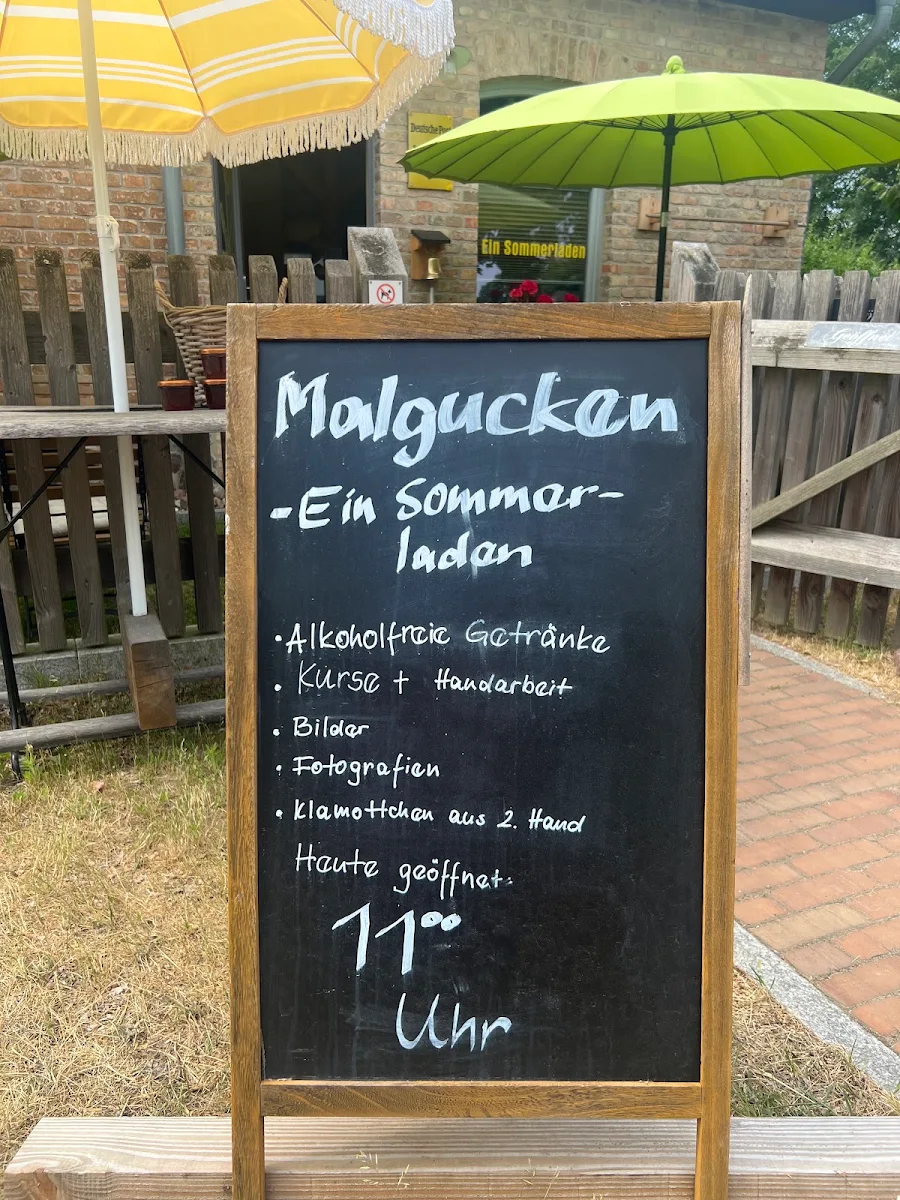 Deutsche Post
Ein Sommerladen
Malgucken
-Ein Sommer-
laden
• Alkoholfreie Getränke
• Kurse + Handarbeit
• Bilder
• Fotografien
• Klamottchen aus 2. Hand
Heute geöffnet:
11°°
Uhr